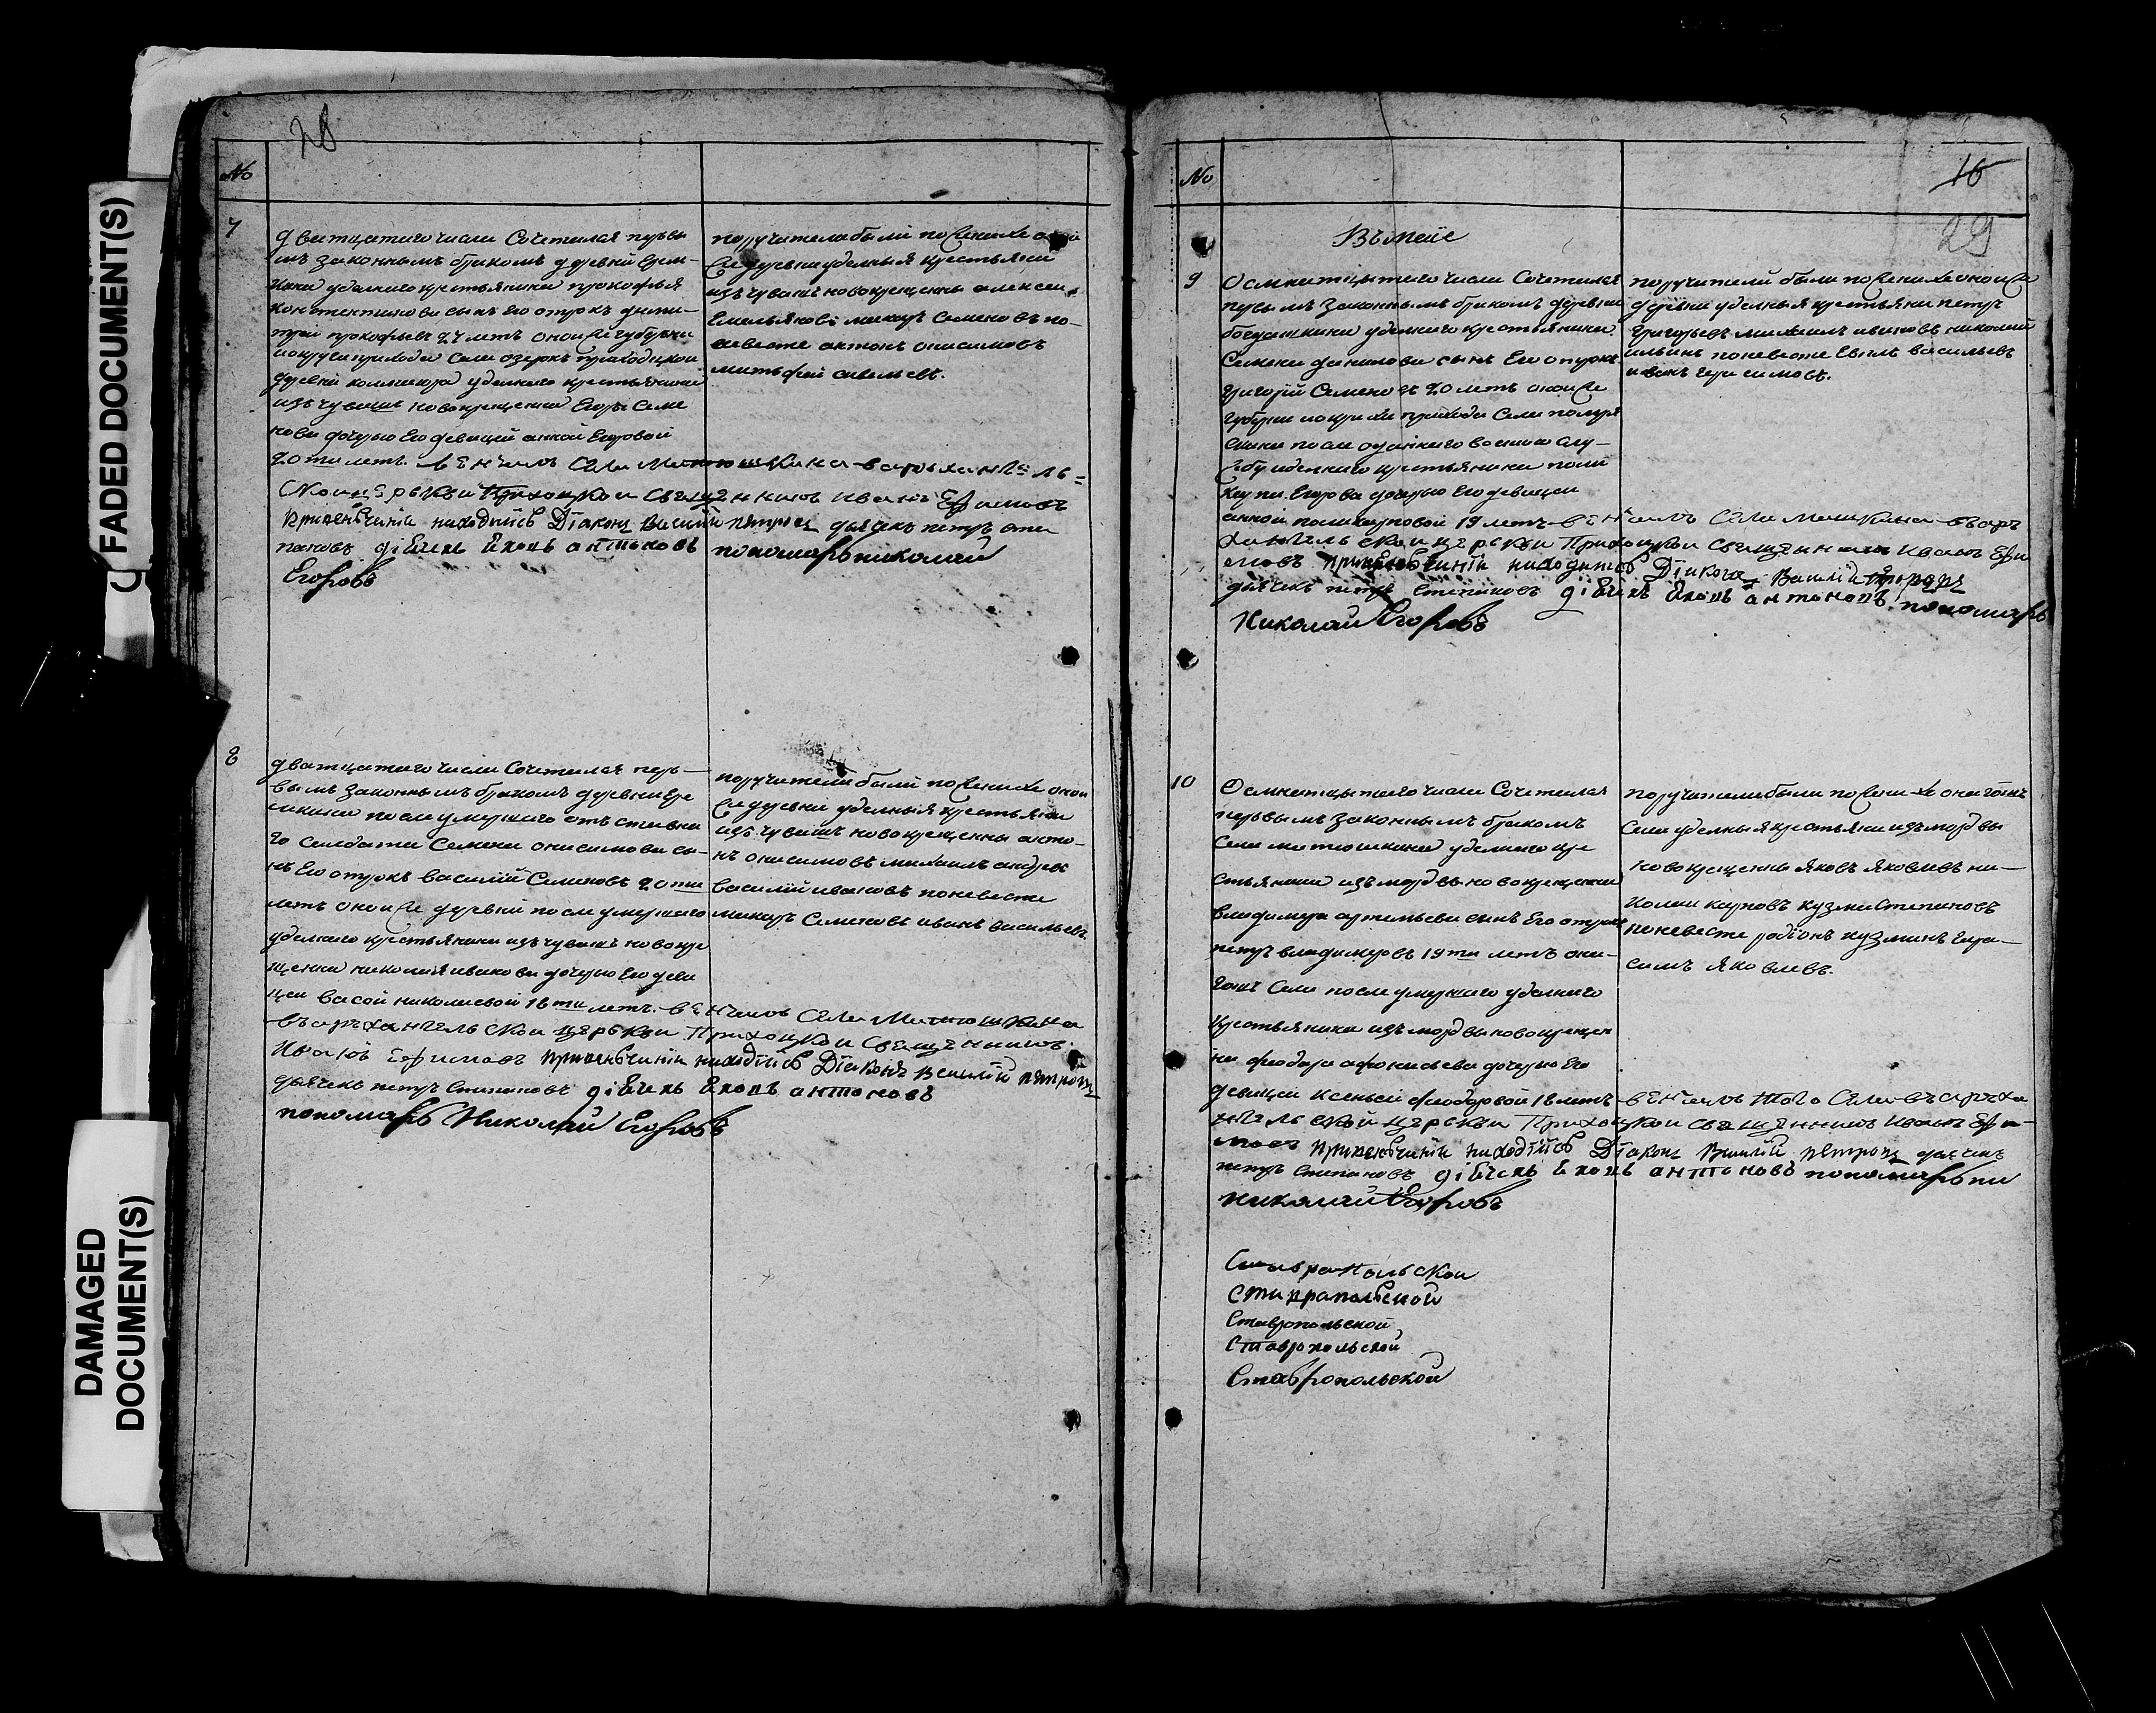 FADED DOCUMENT(S)
DAMAGED
DOCUMENT(S)
28
№
7
дватцатаго числа Сочетался первы
мъ законнымъ бракомъ деревни Ерем-
кина уделнаго крестьянина прокофья
константинова сынъ Его отрокъ дими-
трей прокофьевъ 24 летъ оной же губернии
и округи прихода села озерокъ
деревни уделнаго крестьянина
изъ чувашъ новокрещенна Егора Семе
нова дочерью Его девицей анной Егоровой
20ти летъ. венчалъ села Матюшкина въ архангель=
ской церькви Приходской священникъ Иванъ Ефимовъ
При венчании находились Диаконъ Василий петровъ дьячекъ петръ сте
пановъ дiячекъ Яковъ антоновъ пономарь николай
Егоровъ
поручители были по женихе оной
же деревни уделныя крестьяни
изъ чувашъ новокрещенны алексей
Емельяновъ макаръ Семеновъ по
невесте антонъ онисимовъ
матьфей савельевъ.
8
дватцатаго числа Сочетался пер-
вымъ законнымъ бракомъ деревни Ере
мкина после умершаго отъставна
го солдата Семена онисимова сы-
нъ Его отрокъ василий Семеновъ 20ти
летъ оной же деревни после умершаго
уделнаго крестьянина изъ чувашъ новокре
щенна николая иванова дочерью Его деви
цей васой николаевой 18ти летъ. венчалъ села Матюшкина
въ архангельской церькви Приходской священникъ
Иванъ Ефимовъ При венчании находились Диаконъ Василий петровъ
дьячекъ петръ Степановъ дiячекъ Яковъ антоновъ
пономарь Николай Егоровъ
поручители были по женихе оной
же деревни уделныя крестьяни
изъ чувашъ новокрещенны анто-
нъ онисимовъ михаилъ андрея
василий ивановъ по невесте
макаръ Семеновъ иванъ васильевъ
№
16
29
Въ маие
9
Осмнатцатаго числа Сочетался
первымъ законнымъ бракомъ деревни
богдашкина уделнаго крестьянина
Семена данилова сынъ Его отрокъ
григорий Семеновъ 20 летъ оной же
губернии и округи прихода села
после отданнаго в военную слу-
жбу уделнаго крестьянина поли
карпа Егорова дочерью Его девицей
анной поликарповой 19 летъ венчалъ села Матюшкина въ арх
хангельской церькви Приходской священникъ иванъ Ефи
мовъ При венчании находились Диаконъ Василий петровъ
дьячекъ петръ Степановъ дiячекъ Яковъ антоновъ пономарь
Николай Егоровъ
поручители были по женихе оной же
деревни уделныя крестьяни петръ
григорьевъ михаилъ ивановъ николай
ильинъ по невесте василъевъ
иванъ герасимовъ.
10
Осмнатцатаго числа Сочетался
первымъ законнымъ бракомъ
села матюшкина уделнаго кре
стьянина изъ мордвы новокрещенна
владимера артемьева сынъ Его отрокъ
петръ владимеровъ 19ти летъ она-
гожъ села после умершаго уделнаго
крестьянина изъ мордвы новокрещен
на феодора афонасьева дочерью Его
девицей ксеньей феодоровой 18 летъ венчалъ того села въ арха
нгельской церькви Приходской священникъ Иванъ Ефи-
мовъ При венчании находились Диаконъ Василий петровъ дьячекъ
петръ Степановъ дiячекъ Яковъ антоновъ пономарь ни
николай Егоровъ
поручители были по женихе онагожъ
села уделныя крестьяни изъ мордвы
новокрещенны яковъ яковлевъ ни-
колай карповъ кузма Степановъ
по невесте родионъ кузминъ гера-
симъ яковлевъ.
Ставропольской
Ставропольской
Ставропольской
Ставропольской
Ставропольской